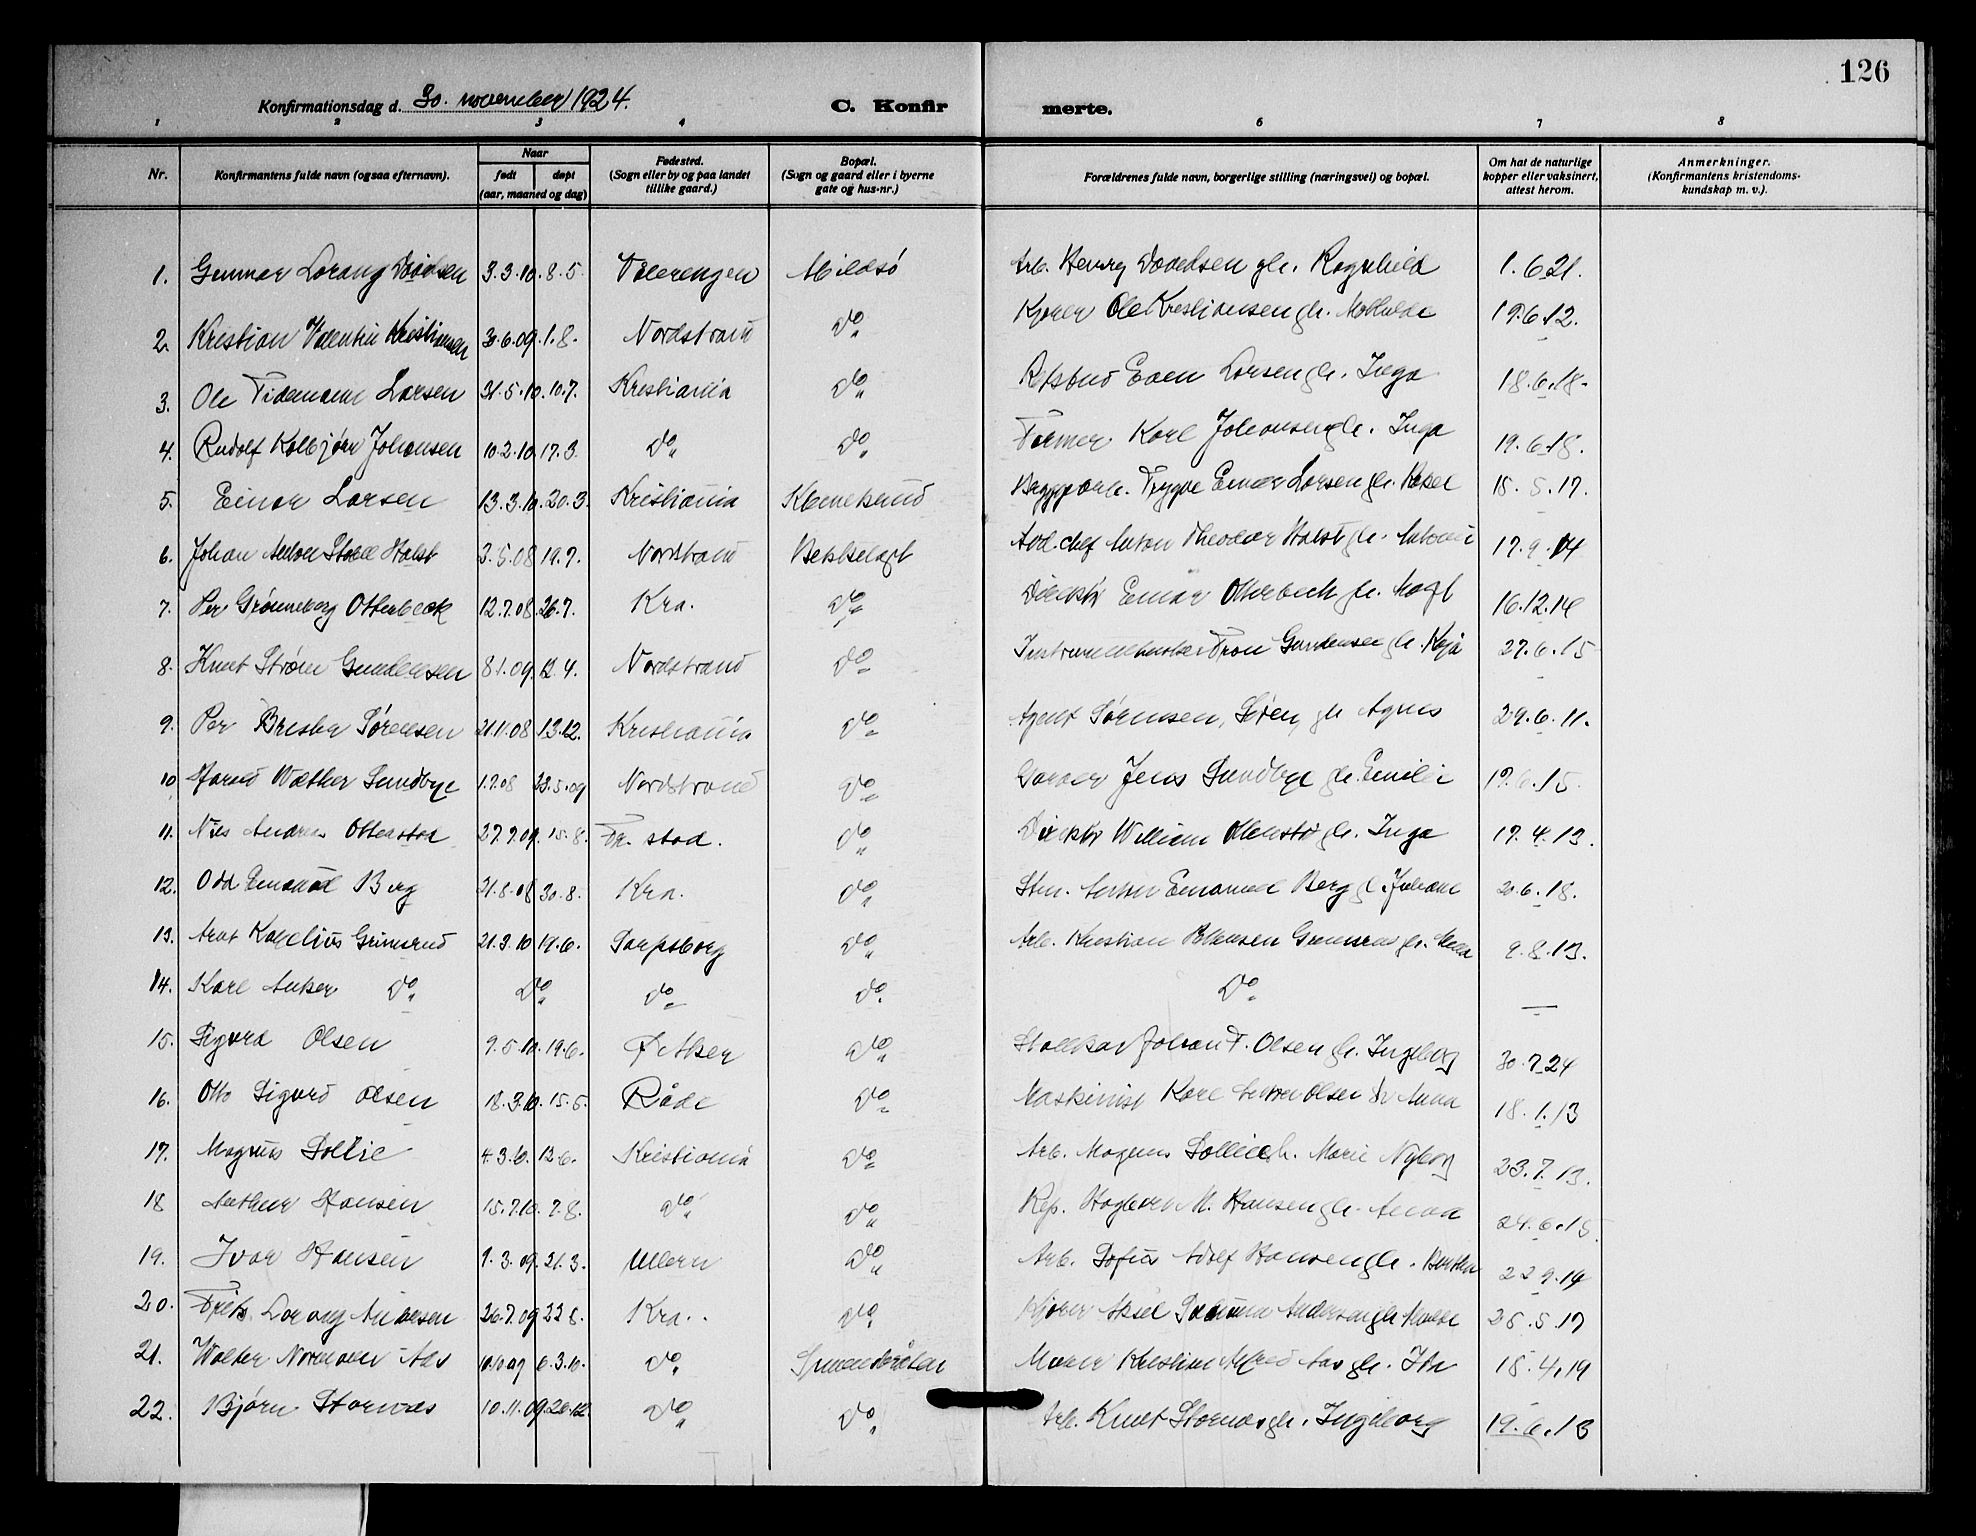 126
Konfirmationsdag d. 30. november 1924. C. Konfirmerte.
1 2 3 4 5 6 7 8
Nr. Konfirmantens fulde navn (ogsaa efternavn). Naar født døpt (aar, maaned og dag) Fødested. (Sogn eller by og paa landet tillike gaard.) Bopæl. (Sogn og gaard eller i byerne gate og hus-nr.) Forældrenes fulde navn, borgerlige stilling (næringsvei) og bopæl. Om hat de naturlige kopper eller vaksinert, attest herom. Anmerkninger. (Konfirmantens kristendomskundskap m. v.).
1. Gunnar Lorang Davidsen 3.3.10. 8.5. Vaalerengen Mildsö Arb. Henry Davidsen gh. Ragnhild 1.6.21.
2. Kristian Valentin Kristiansen 30.6.09. 1.8. Nordstrand Do Kjører Ole Kristiansen gh. Mathilde 19.6.12.
3. Ole Tidemann Larsen 31.5.10. 10.7. Kristiania Do Even Larsen gh. Inga 18.6.18.
4. Rudolf Kolbjörn Johansen 10.2.10. 17.3. Do Do Former Karl Johansen gh. Inga 19.6.18.
5. Einar Larsen 13.3.10. 20.3. Kristiania Trygve Einar Larsen gh. 15.5.17.
6. Johan Anton Holst 3.5.08 19.7. Nordstrand Bekkelaget Avd. chef Anton Theodor Holst gh. 17.9.14
7. Per Grønneberg Otterbeck 12.7.08. 26.7. Kra. Do Direktør Einar Otterbeck gh. 16.12.14
8. Knut Strøm Gundersen 8.1.09. 12.4. Nordstrand Do Gundersen gh. Kaja 27.6.15
9. Per Sørensen 21.11.08 13.12. Kristiania Do Agent Sørensen, Søren, gh Agnes 29.6.11.
10 Harald Walther Sundbye 1.7.08 23.5.09 Nordstrand Do Garver Jens Sundbye gh. Emilie 17.6.15.
11. Nils Andreas Ottenstad 27.7.09. 15.8. Fr. stad. Do Direktør William Ottenstad gh. Inga 17.4.13.
12. Odd Emanuel Berg 21.8.08 30.8. Kra. Do Emanuel Berg gh. Juliane 20.6.18.
13. Arnt Kornelius Grimsrud 21.3.10 19.6. Sarpsborg Do Arb. Kristian Grimsrud gh. Anna 9.8.13.
14. Karl Anker Do Do Do Do Do —
15. Sigurd Olsen 9.5.10. 19.6. Do Johan F. Olsen gh. Ingeborg 30.7.24
16. Otto Sigurd Olsen 18.3.10. 15.5. Råde Do Maskinist Karl Anton Olsen gh Anna 18.1.13
17. Magnus Dollie 4.3.6. 12.6. Kristiania Do Arb. Mogens Dollie gh. Marie Nyborg 23.7.13.
18 Arthur Hansen 15.7.10. 7.8. Do Do Rep. M. Hansen gh. Anna 24.6.15.
19. Ivar Hansen 9.3.09. 21.3. Ullern Do Arb. Sofus Adolf Hansen gh. 22.9.14
20. Frits Lorang Andersen 26.7.09 22.8. Kra. Do Kjører Aksel Andersen gh 25.5.17
21. Walter Normann Aas 10.10.09 6.3.10. Do Maler Kristian Alfred Aas gh. Ida 18.4.14
22. Bjørn Stornæs 10.11.09. 26.12. Do Do Arb. Knut Stornæs gh. Ingeborg 19.6.13